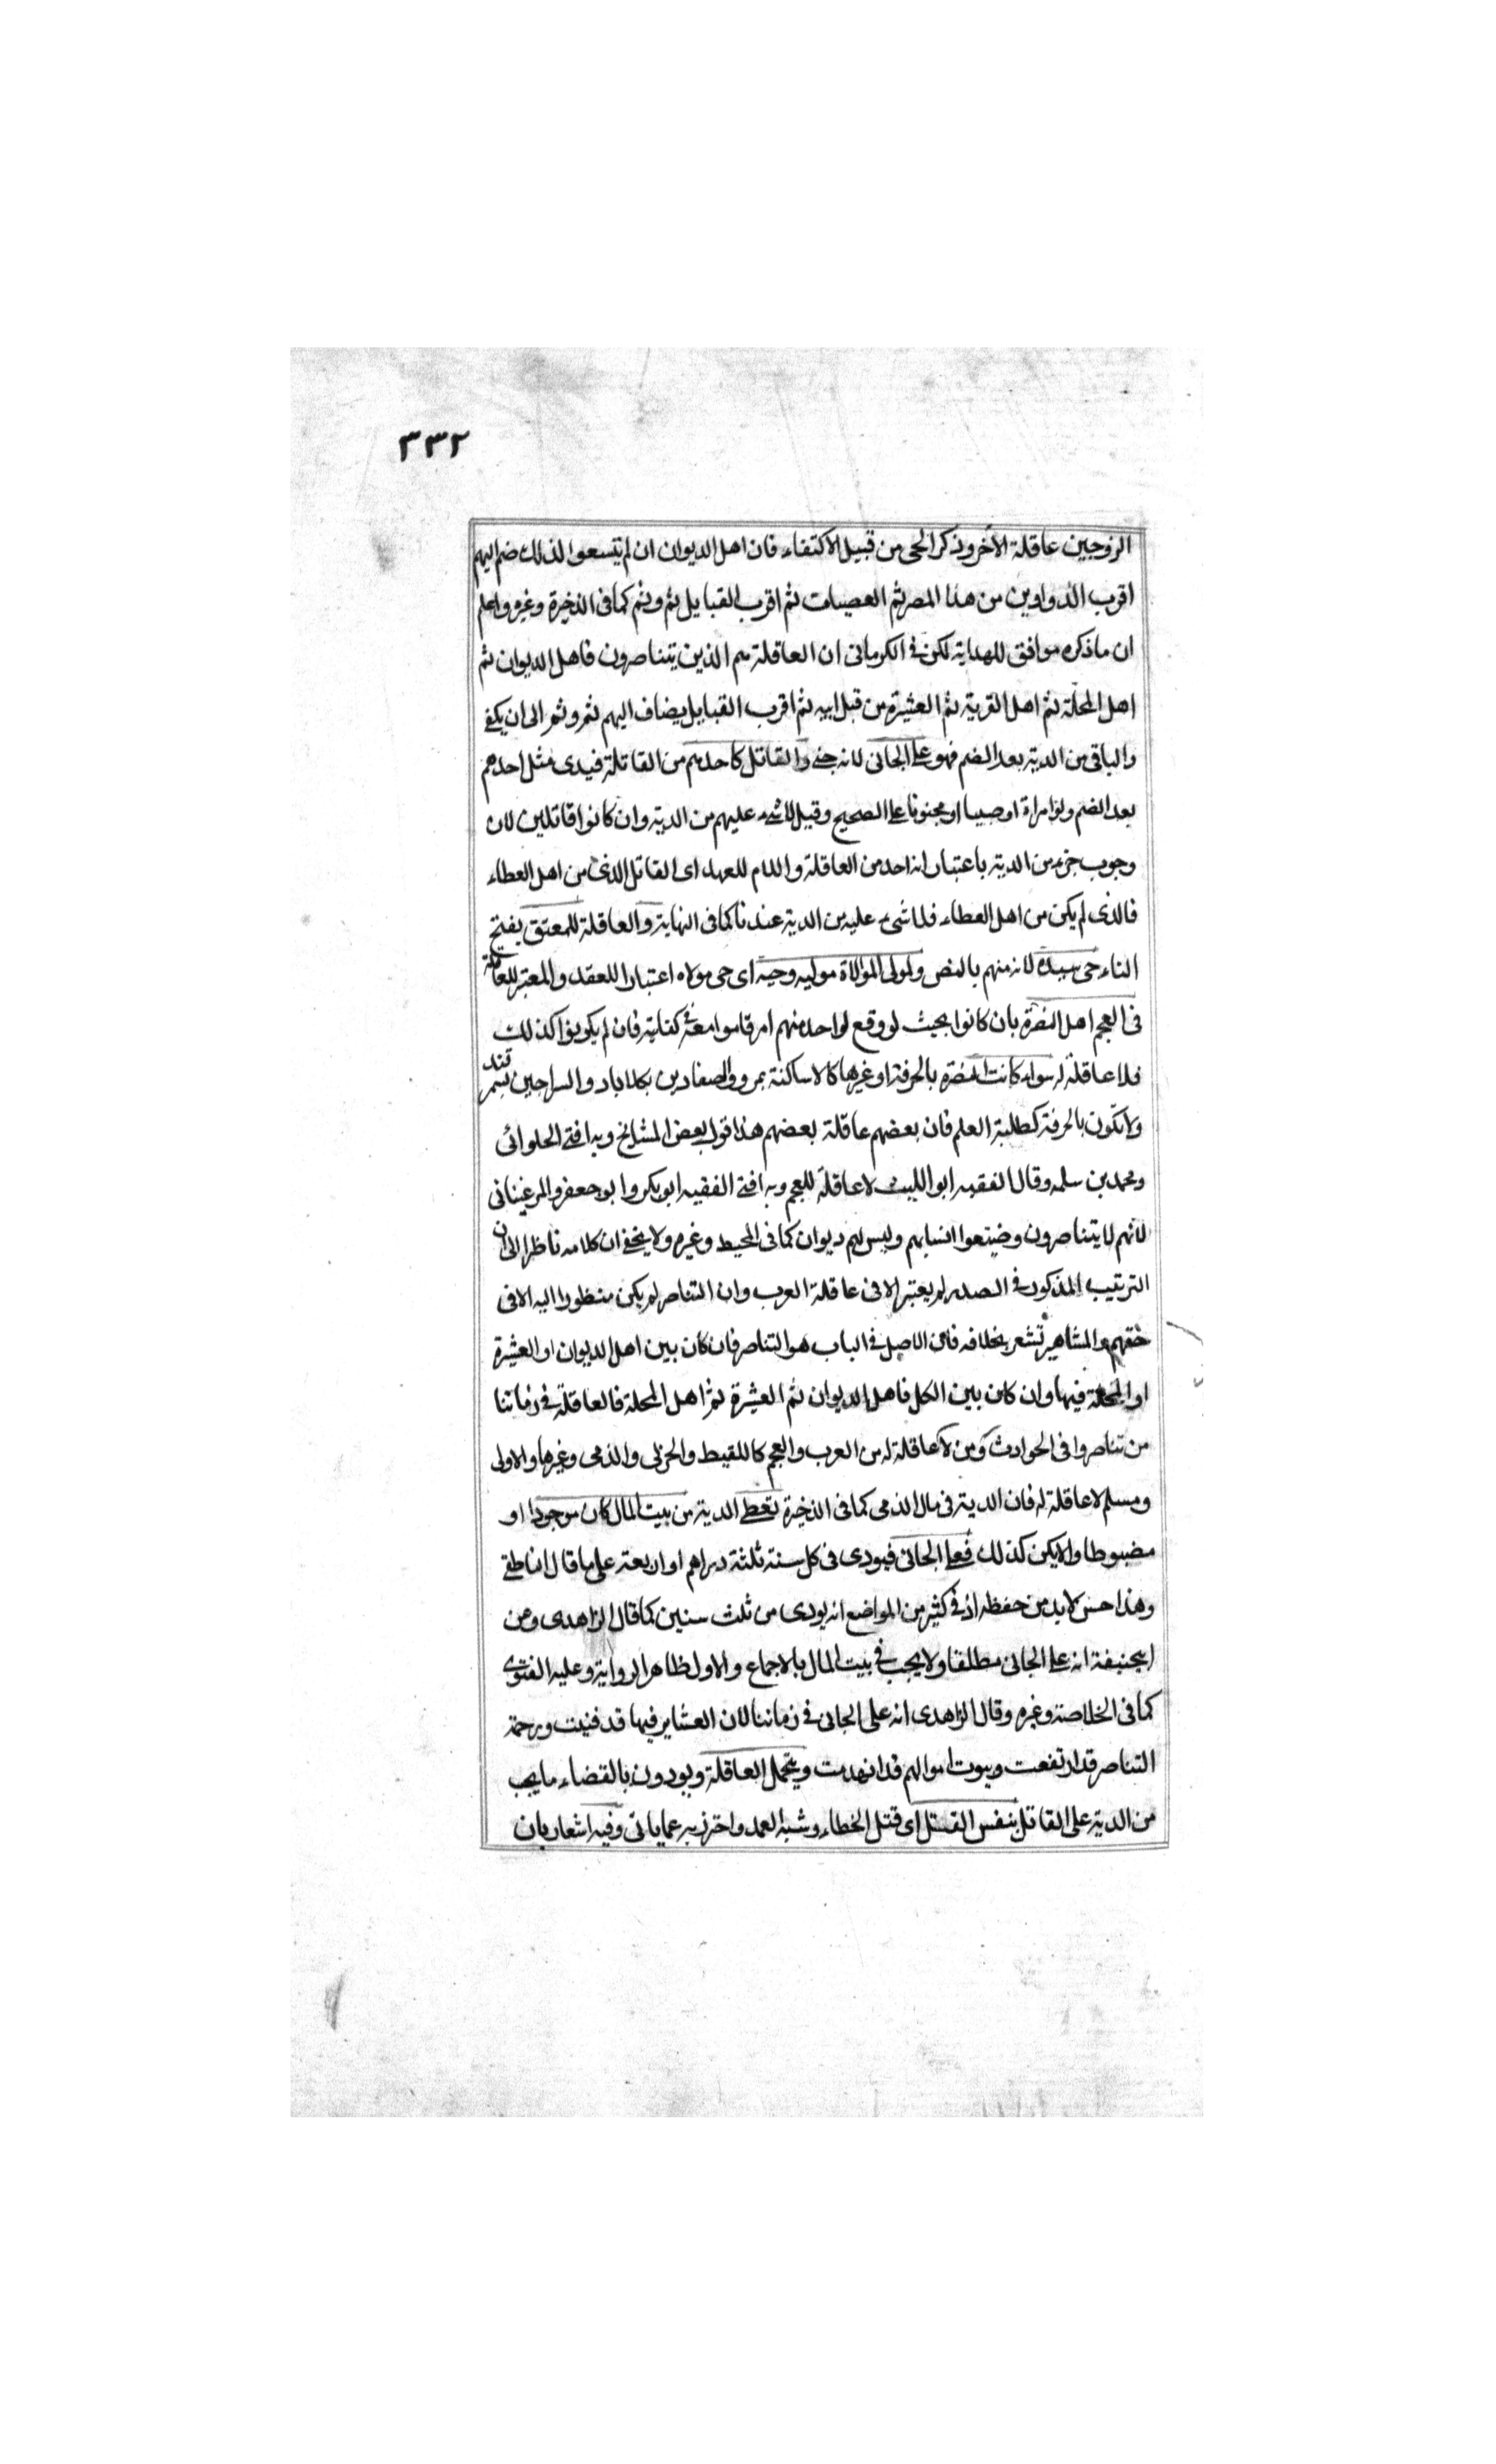 ٣٣٢
الزوجين عاقلة الآخر وذكر الحى من قبيل الاكتفاء فان اهل الديوان ان لم يتسعوا لذلك ضم اليهم
اقرب الدواوين من هذا المصر ثم العصبات ثم اقرب القبايل ثم وثم كما فى الذخيرة وغيره واعلم
ان ما ذكره موافق للهداية لكن فى الكرمانى ان العاقلة هم الذين يتناصرون فاهل الديوان ثم
اهل المحلة ثم اهل القرية ثم العشيرة من قبل ابيه ثم اقرب القبايل يضاف اليهم ثم وثم الى ان يكفى
والباقى من الدية بعد الضم فهو على الجانى لانه جنى والقاتل كاحدهم من القاتلة فيدى مثل احدهم
بعد الضم ولو امراة او صبيا او مجنونا على الصحيح وقيل لا شىء عليهم من الدية وان كانوا قاتلين لان
وجوب جزء من الدية باعتبار انه احد من العاقلة واللام للعهد اى القاتل الذى من اهل العطاء
فالذى لم يكن من اهل العطاء فلا شىء عليه من الدية عندنا كما فى النهاية والعاقلة للمعتق بفتح
التاء حى سيده لانه منهم بالنص ولمولى الموالاة موليه وحيه اى حى مولاه اعتبارا للعقد والمعتبر للعاقلة
فى العجم اهل النصرة بان كانوا بحيث لو وقع لواحد منهم امر قاموا معه فى كفايته فان لم يكونوا كذلك
فلا عاقلة له سواء كانت النصرة بالحرفة او غيرها كالاساكفة بمرو والصفارين بكلاباد والسراجين بسمرقند
ولا تكون بالحرفة كطلبة العلم فان بعضهم عاقلة بعضهم هذا قول بعض المشايخ وبه افتى الحلوائى
ومحمد بن سلمه وقال الفقيه ابو الليث لا عاقلة للعجم وبه افتى الفقيه ابو بكر وابو جعفر والمرغينانى
لانهم لا يتناصرون وضيعوا انسابهم وليس لهم ديوان كما فى المحيط وغيره ولا يخفى ان كلامه ناظر الى ان
الترتيب المذكور فى الصدر لم يعتبر الا فى عاقلة العرب وان التناصر لم يكن منظورا اليه الا فى
حقهم والمشاهير تشعر بخلافه فان الاصل فى الباب هو التناصر فان كان بين اهل الديوان او العشيرة
او المحلة فيها وان كان بين الكل فاهل الديوان ثم العشيرة ثم اهل المحلة فالعاقلة فى زماننا
من تناصروا فى الحوادث ومن لا عاقلة له من العرب والعجم كاللقيط والحربى والذمى وغيرها والاولى
ومسلم لا عاقلة له فان الدية فى مال الذمى كما فى الذخيرة تعطى الدية من بيت المال كان موجودا او
مضبوطا والا يكن كذلك فعلى الجانى فيودى فى كل سنة ثلثة دراهم او اربعة على ما قال الناطفى
وهذا حسن لا بد من حفظه اذ فى كثير من المواضع انه يودى من ثلث سنين كما قال الزاهدى وعن
ابى حنيفة انه على الجانى مطلقا ولا يجب فى بيت المال بالاجماع والاول ظاهر الرواية وعليه الفتوى
كما فى الخلاصة وغيره وقال الزاهدى انه على الجانى فى زماننا لان العشاير فيها قد فنيت ورحمة
التناصر قد ارتفعت وبيوت اموالهم قد انهدمت ويتحمل العاقلة ويودون بالقضاء ما يجب
من الدية على القاتل بنفس القتل اى قتل الخطاء وشبه العمد واحترز به عما ياتى وفيه اشعار بان